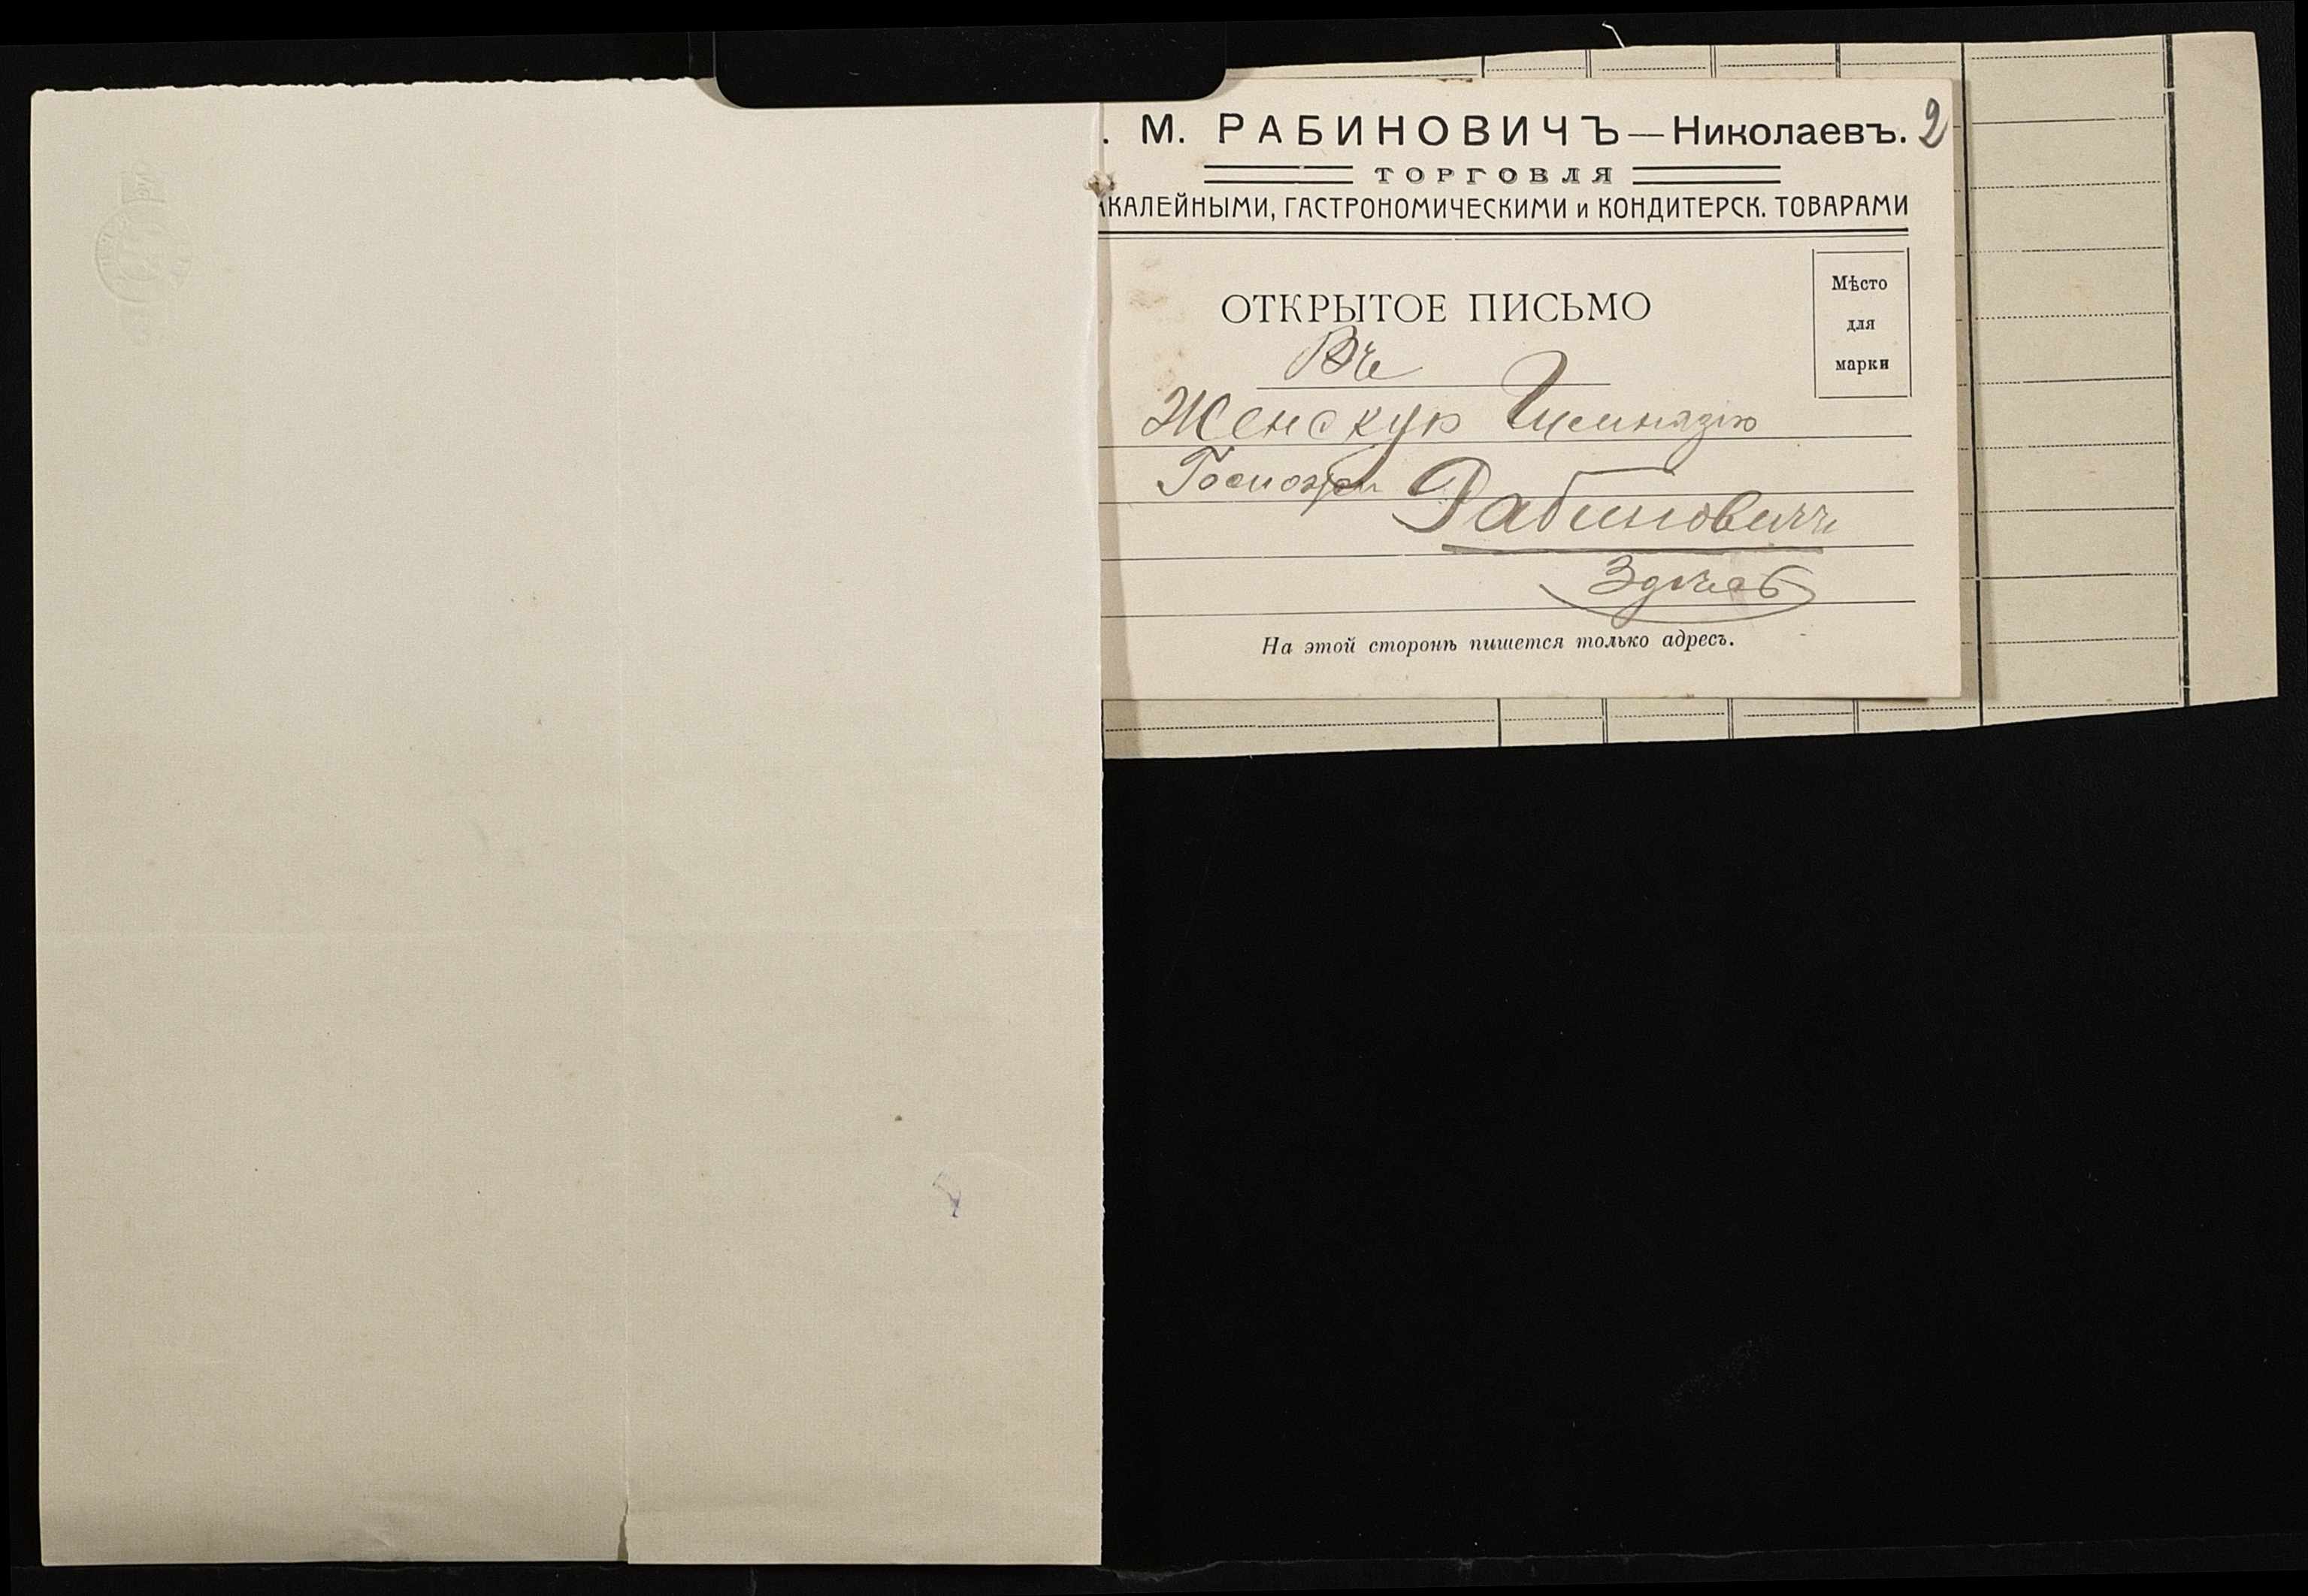 . М. РАБИНОВИЧЪ—Николаевъ. 2
ТОРГОВЛЯ
АКАЛЕЙНЫМИ, ГАСТРОНОМИЧЕСКИМИ и КОНДИТЕРСК. ТОВАРАМИ
ОТКРЫТОЕ ПИСЬМО
Мѣсто
для
марки
Въ
Женскую Гимназію
Госпожѣ Рабиновичъ
Здѣсь
На этой сторонѣ пишется только адресъ.